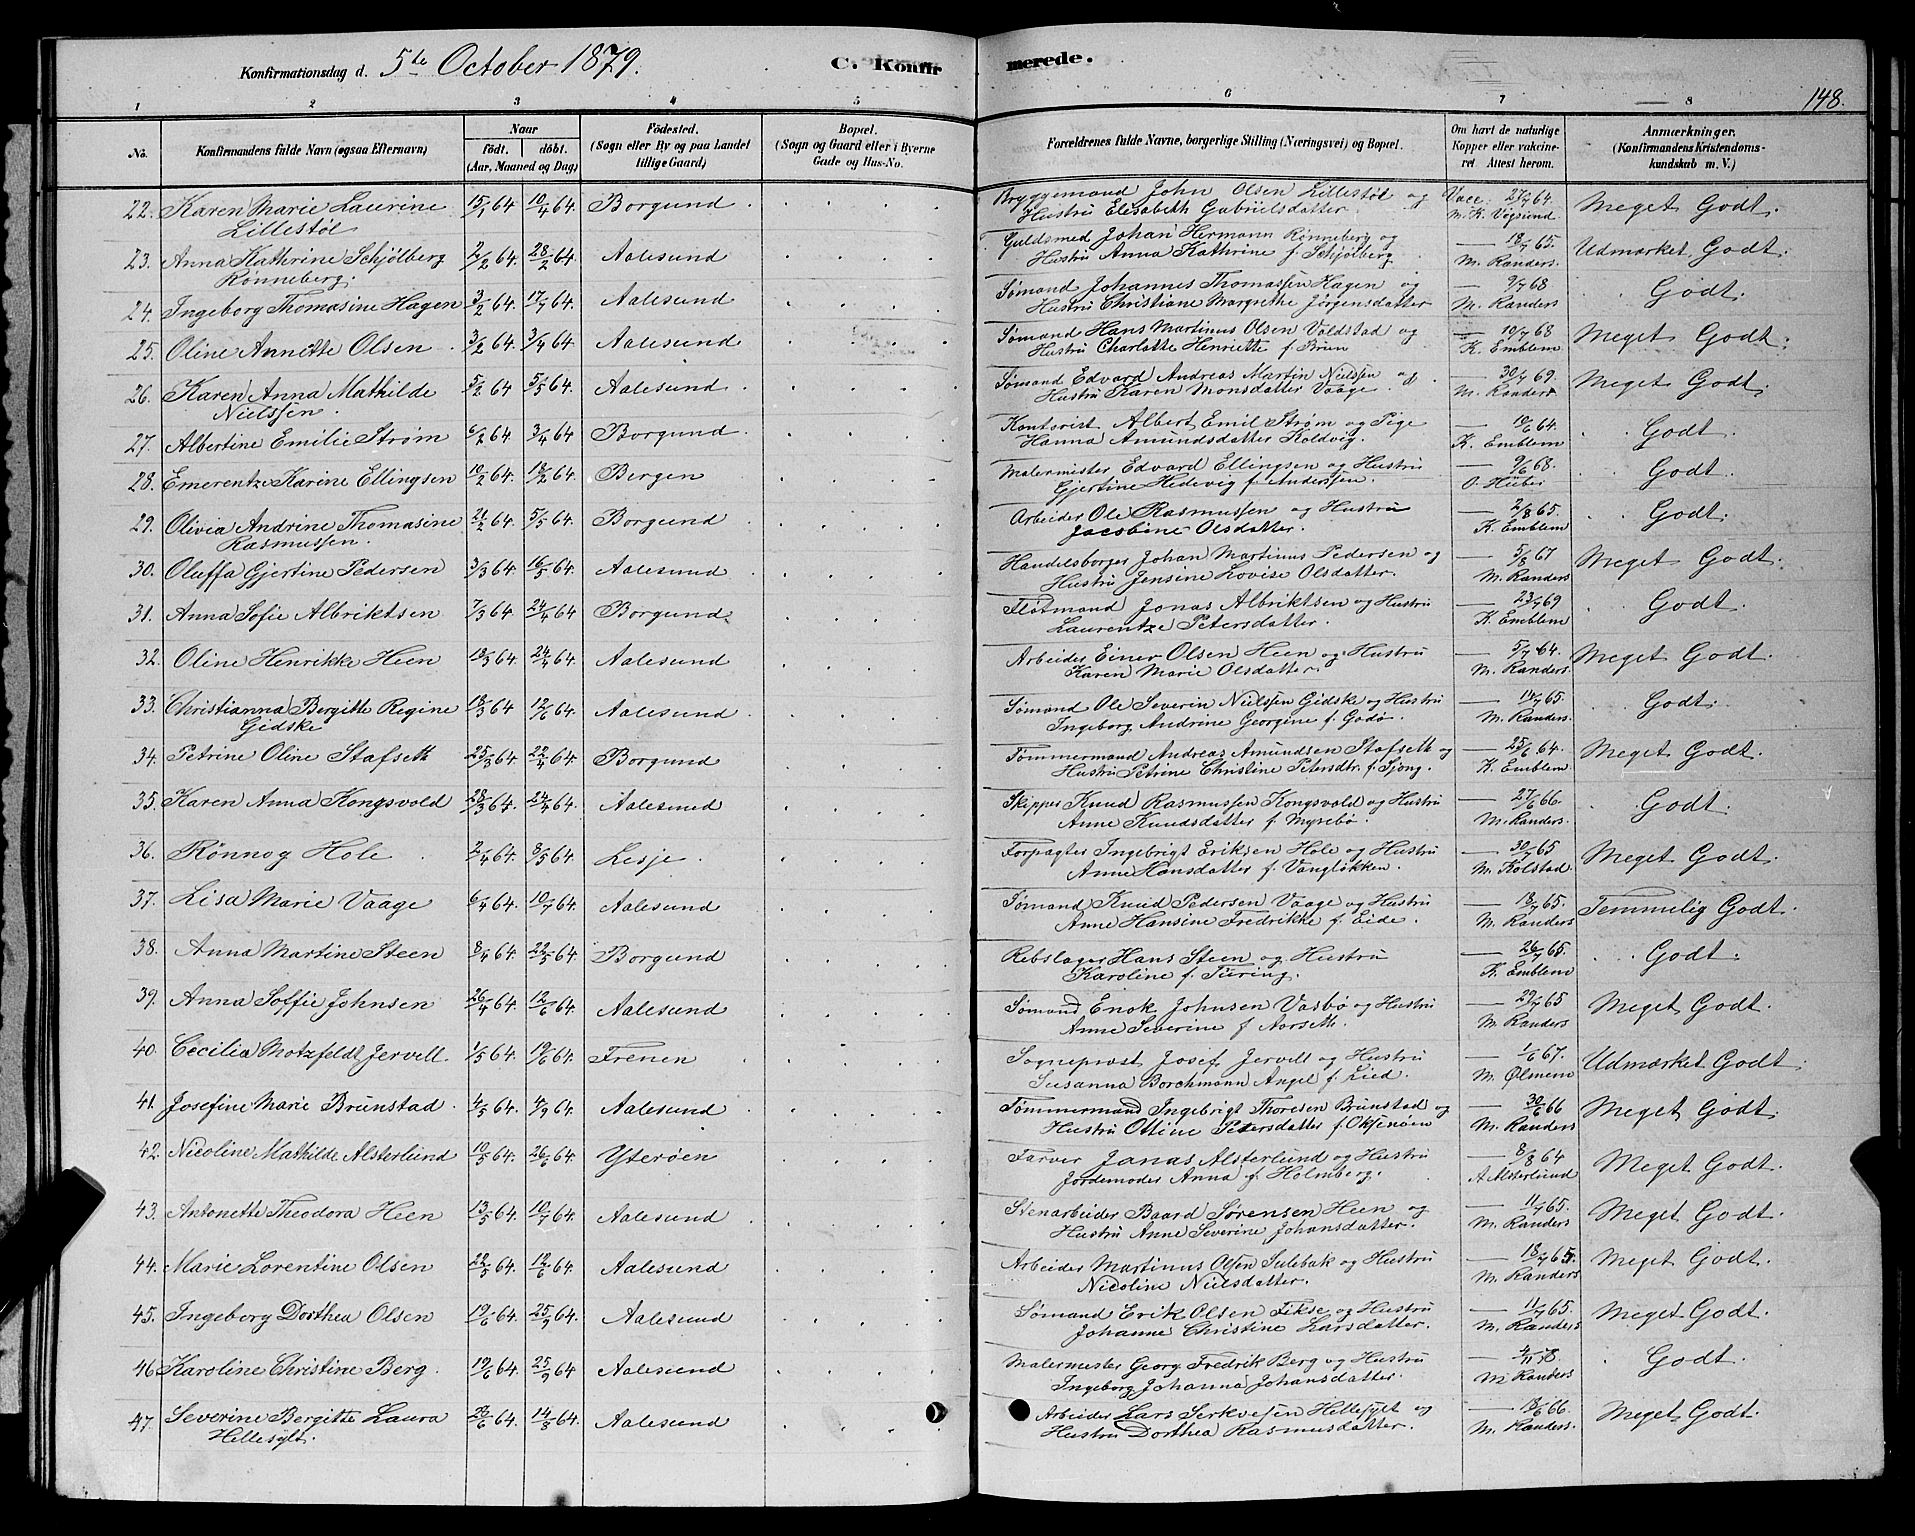 Konfirmationsdag d. 5te October 1879. C. Konfirmerede.
148.
1 2 3 4 5 6 7 8
No. Konfirmandens fulde Navn (ogsaa Efternavn) Naar født. døbt. (Aar, Maaned og Dag) Fødested. (Sogn eller By og paa Landet tillige Gaard) Bopæl. (Sogn og Gaard eller i Byerne Gade og Hus-No. Forældrenes fulde Navne, borgerlige Stilling (Næringsvei) og Bopæl. Om havt de naturlige Kopper eller vakcineret. Attest herom. Anmærkninger. (Konfirmandens Kristendomskundskab m. V.)
22. Karen Marie Laurine 15/1 64 10/4 64. Borgund Bryggemand John Olsen Lillestøl og Vacc. 27/7 64. Meget Godt.
Lillestøl Hustru Elisabeth Gabrielsdatter. M. K. Vogsund
23. Anna Kathrine Schjølberg 2/2 64. 28/2 64. Aalesund Guldsmed Johan Hermann Rønneberg og — 18/7 65. Udmærket Godt.
Rønneberg. Hustru Anna Kathrine f. Schjølberg M. Randers.
24. Ingeborg Thomasine Hagen 3/2 64. 17/7 64. Aalesund Sømand Johannes Thomassen Hagen og — 9/7 68 Godt.
Hustru Christiane Margrethe Jørgensdatter M. Randers
25. Oline Annette Olsen 3/2 64. 3/4 64. Aalesund Sømand Hans Martinus Olsen Voldstad og — 10/7 68 Meget Godt.
Hustru Charlotte Henriette f. Brun K. Emblem
26. Karen Anna Mathilde 5/2 64 5/5 64. Aalesund Sømand Edvard Andreas Martin Nielsen og — 30/7 69. Meget Godt.
Nielssen. Hustru Karen Monsdatter Vaage M. Randers
27. Albertine Emilie Strøm 6/2 64 3/4 64 Borgund Kontorist Albert Emil Strøm og Pige — 10/6 64. Godt.
Hanna Amundsdatter Koldvig. K. Emblem
28. Emerentze Karine Ellingsen 10/2 64. 18/2 64. Bergen Malermister Edvard Ellingsen og Hustru — 9/6 68. Godt
Gjertine Hedevig f. Anderssen. O. Hüber
29. Olivea Andrine Thomasine 21/2 64. 5/5 64. Borgund Arbeider Ole Rasmussen og Hustru — 2/8 65. Godt.
Rasmussen. Jacobine Olsdatter. K. Emblem
30. Oluffa Gjertine Pedersen 3/3 64. 16/5 64. Aalesund Handelsborger Johan Martinus Pedersen og — 5/8 67 Meget Godt.
Hustru Jensine Lovise Olsdatter. M. Randers
31. Anna Sofie Albriktsen 7/3 64. 24/4 64 Borgund. Fløtmand Jonas Albriktsen og Hustru — 23/7 69 Godt.
Laurentze Petersdatter. K. Emblem
32. Oline Henrikke Heen 13/3 64. 24/4 64. Aalesund Arbeider Einer Olsen Heen og Hustru — 5/7 64. Meget Godt.
Karen Marie Olsdatter. M. Randers
33. Christianna Bergitte Regine 18/3 64 12/6 64. Aalesund Sømand Ole Severin Nielsen Gidske og Hustru — 14/7 65. Godt.
Gidske Ingeborg Andrine Georgine f. Godø. M. Randers.
34. Petrine Oline Stafseth 25/3 64. 22/4 64. Borgund Tømmermand Andreas Amundsen Stafseth og — 25/6 64. Meget Godt.
Hustru Petrine Christine Petersdtr. f. Sjong. K. Emblem
35. Karen Anna Kongsvold 28/3 64. 24/4 64. Aalesund Skipper Knud Rasmussen Kongsvold og Hustru — 27/6 66. Godt.
Anne Knudsdatter f. Myrebø. M. Randers.
36. Rønnog Hole 2/4 64. 8/5 64. Lesje. Forpagter Ingebrigt Eriksen Hole og Hustru — 30/7 65 Meget Godt.
Anne Hansdatter f. Vangløkken. M. Kolstad
37. Lisa Marie Vaage 6/4 64. 10/7 64. Aalesund Sømand Knud Pedersen Vaage og Hustru — 18/7 65. Temmelig Godt.
Anne Hansine Fredrikke f. Eide. M. Randers
38. Anna Martine Steen 8/4 64. 22/5 64. Borgund Rebslager Hans Steen og Hustru — 26/7 65. Godt.
Karoline f. Türing. K. Emblem
39. Anna Soffie Johnsen 26/4 64. 12/6 64. Aalesund Sømand Enok Johnsen Vasbø og Hustru — 29/7 65 Meget Godt.
Anne Severine f Aarseth. M. Randers
40. Cecilia Motzfeldt Jervell. 1/5 64. 19/6 64. Frenen Sogneprost Josef Jervell og Hustru — 1/6 67. Udmærket Godt.
Susanna Borchmann Angel f. Lied. M. Ølmem
41. Josefine Marie Brunstad 4/5 64. 4/9 64. Aalesund Tømmermand Ingebrigt Thoresen Brunstad og — 30/6 66 Meget Godt.
Hustru Ottine Petersdatter f. Oksenøen M. Randers
42. Nicoline Mathilde Alsterlund 10/5 64. 26/6 64. Yterøen Farver Jonas Alsterlund og Hustru — 8/8 64 Meget Godt.
Jordemoder Anna f. Holmberg. A Alsterlund
43. Antonette Theodora Heen 13/5 64. 10/7 64. Aalesund Stenarbeider Baard Sørensen Heen og — 11/7 65. Meget Godt.
Hustru Anne Severine Johansdatter. M. Randers
44. Marie Lorentine Olsen 22/5 64. 12/6 64. Aalesund Arbeider Martinus Olsen Sulebak og Hustru — 18/7 65. Meget Godt.
Nicoline Nielsdatter. M. Randers
45. Ingeborg Dorthea Olsen 19/6 64. 25/9 64. Aalesund Sømand Erik Olsen Fikse og Hustru — 11/7 65. Meget Godt.
Johanne Christine Larsdatter. M. Randers
46 Karoline Christine Berg. 19/6 64. 25/9 64 Aalesund Malermester Georg Fredrik Berg og Hustru — 4/11 78. Godt.
Ingeborg Johanna Johansdatter. M Randers
47. Severine Bergitte Laura 26/6 64. 14/8 64. Aalesund Arbeider Lars Serkvesen Hellesylt og — 18/6 66. Meget Godt.
Hellesylt. Hustru Dorthea Rasmusdatter. M. Randers.